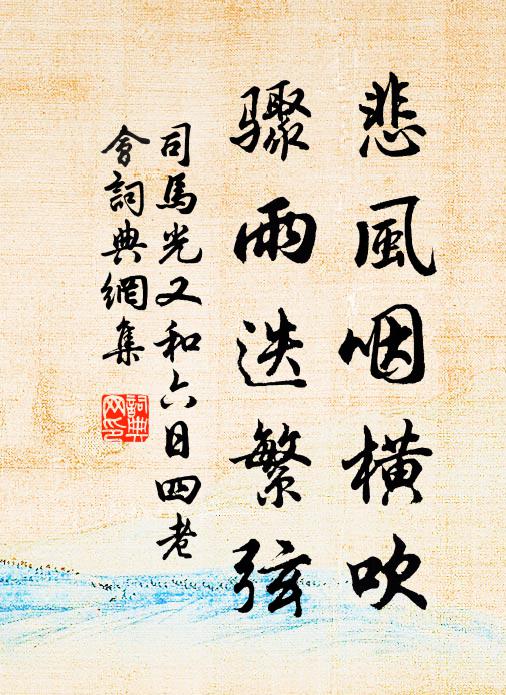 悲風咽橫吹
驟雨迭繁弦
司馬光又和六日四老
會詞典網集
詞典
网印